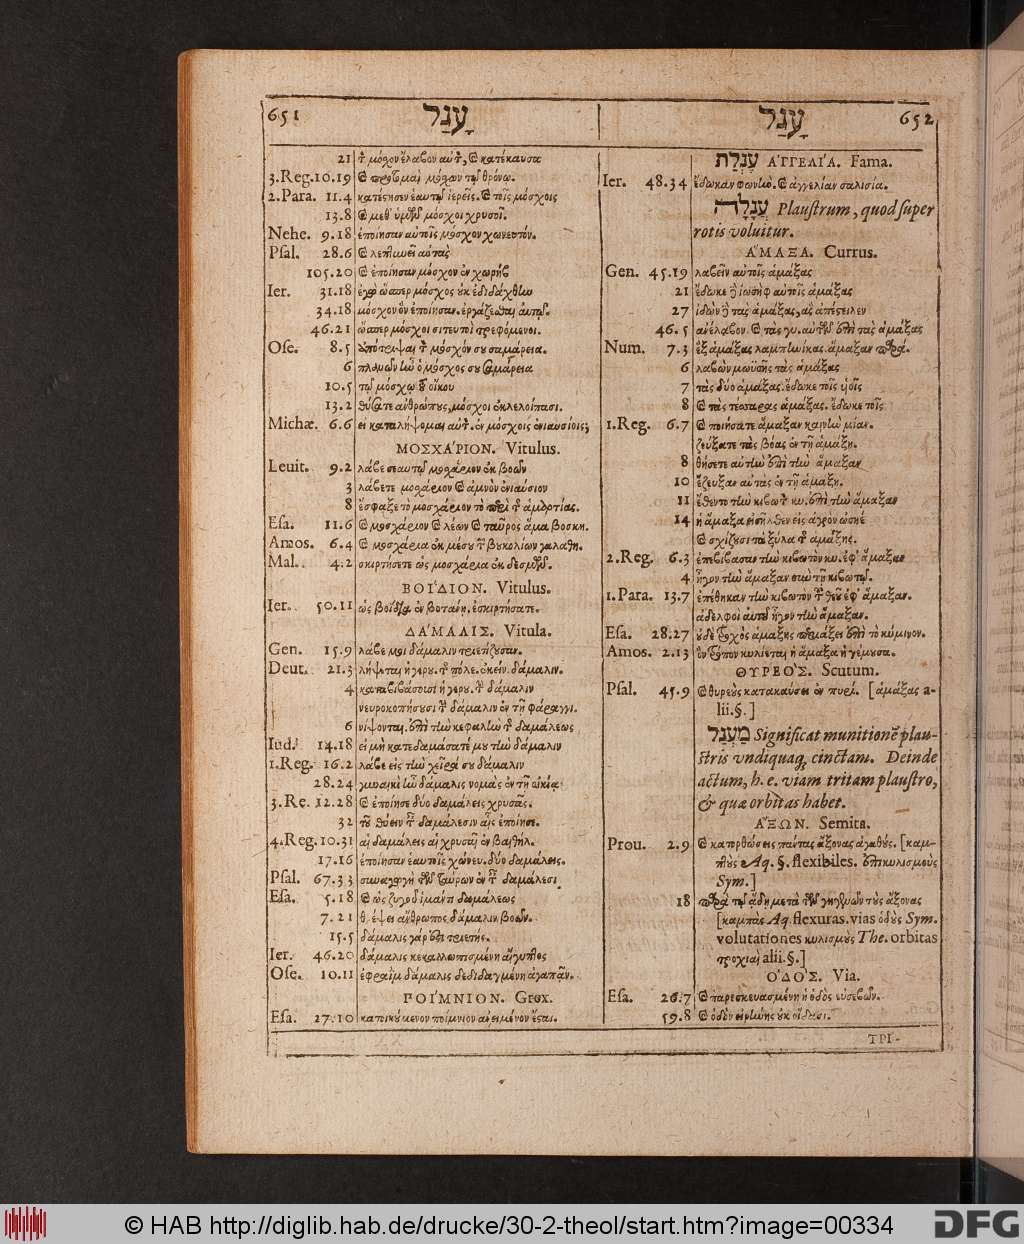 651 עָגַל
21 καὶ μόσχον ἔλαβον αὐτ, καὶ κατέκαυσα
3.Reg.10.19 καὶ μόσχων τῷ θρόνῳ.
2.Para. 11.4 κατέστησεν ἑαυτῷ ἱερεῖς. καὶ τοῖς μόσχοις
13.8 καὶ μεθ' ὑμῶν μόσχοι χρυσοῖ.
Nehe. 9.18 ἐποίησαν αὐτοῖς μόσχον χωνευτόν.
Psal. 28.6 καὶ λεπτυνεῖ αὐτὰς
105.20 καὶ ἐποίησαν μόσχον ἐν χωρὴβ
Ier. 31.18 ἐγὼ ὥσπερ μόσχος οὐκ ἐδιδάχθην
34.18 μόσχον ὃν ἐποίησαν. ἐργάζεσθαι αὐτῷ.
46.21 ὥσπερ μόσχοι σιτευτοὶ τρεφόμενοι.
Ose. 8.5 ἀπότριψαι τ μόσχόν σου σαμάρεια.
6 πλανῶν ἦν ὁ μόσχος σου σαμάρεια
10.5 τῷ μόσχῳ τοῦ οἴκου
13.2 θύσατε ἀνθρώπους, μόσχοι ἐκλελοίπασι.
Michæ. 6.6 εἰ καταλήψομαι αὐτ. ἐν μόσχοις ἐνιαυσίοις;
ΜΟΣΧΑ'ΡΙΟΝ. Vitulus.
Leuit. 9.2 λάβε σεαυτῷ μοχάριον ἐκ βοῶν
3 λάβετε μοχάριον καὶ ἀμνὸν ἐνιαύσιον
8 ἔσφαξε τὸ μοσχάριον τὸ περὶ τ ἁμαρτίας.
Esa. 11.6 καὶ μοσχάριον καὶ λέων καὶ ταῦρος ἅμα βοσκη.
Amos. 6.4 καὶ μοσχάρια ἐκ μέσου τ βουκολίων γαλαθη.
Mal. 4.2 σκιρτήσετε ὡς μοσχάρια ἐκ δεσμῶν.
ΒΟΙ'ΔΙΟΝ. Vitulus.
Ier. 50.11 ὡς βοΐδια ἐν βοτάνῃ, ἐσκιρτήσατε.
ΔΑ'ΜΑΛΙΣ. Vitula.
Gen. 15.9 λάβε μοι δάμαλιν τριετίζουσαν.
Deut. 21.3 λήψεται ἡ γερου. τ πόλε. ἐκείν. δάμαλιν.
4 καταβιβάσουσι ἡ γερου. τ δάμαλιν
νευροκοπήσουσι τ δάμαλιν ἐν τῇ φάραγγι.
6 νίψονται. ἐπὶ τὴν κεφαλὴν τ δαμάλεως
Iud. 14.18 εἰ μὴ κατεδαμάσατέ μου τὴν δάμαλιν
1.Reg. 16.2 λάβε εἰς τὴν χεῖρά σου δάμαλιν
28.24 γυναικὶ ἦν δάμαλις νομὰς ἐν τῇ οἰκίᾳ
3.Re. 12.28 καὶ ἐποίησε δύο δαμάλεις χρυσᾶς.
32 τοῦ θύειν τ δαμάλεσιν αἷς ἐποίησε.
4.Reg.10.31 αἱ δαμάλεις αἱ χρυσαῖ ἐν βαιθήλ.
17.16 ἐποίησαν ἑαυτοῖς χώνευ. δύο δαμάλεις.
Psal. 67.33 συναγωγὴ τῶν ταύρων ἐν τ δαμάλεσι
Esa. 5.18 καὶ ὡς ζυγοῦ ἱμάντι δαμάλεως
7.21 θρέψει ἄνθρωπος δάμαλιν βοῶν.
15.5 δάμαλις γάρ ἐστι τριετής.
Ier. 46.20 δάμαλις κεκαλλωπισμένη αἴγυπτος
Ose. 10.11 ἐφραῒμ δάμαλις δεδιδαγμένη ἀγαπᾷν.
ΠΟΙ'ΜΝΙΟΝ. Grex.
Esa. 27.10 κατοικούμενον ποίμνιον ἀνειμένον ἔσται.
עָגַל 652
עִגְלַת Α'ΓΓΕΛΙ'Α. Fama.
Ier. 48.34 ἔδωκαν φωνὴν. καὶ ἀγγελίαν σαλισία.
עֲגָלָה Plaustrum, quod super
rotis voluitur.
Α'ΜΑΞΑ. Currus.
Gen. 45.19 λαβεῖν αὐτοῖς ἁμάξας
21 ἔδωκε δὲ ἰωσὴφ αὐτοῖς ἁμάξας
27 ἰδὼν δὲ τὰς ἁμάξας, ἃς ἀπέστειλεν
46.5 ἀνέλαβον. καὶ τὰς γυ. αὐτῶν ἐπὶ τὰς ἁμάξας
Num. 7.3 ἓξ ἁμάξας λαμπηνίκας. ἅμαξαν παρὰ.
6 λαβὼν μωϋσῆς τὰς ἁμάξας
7 τὰς δύο ἁμάξας. ἔδωκε τοῖς υἱοῖς
8 καὶ τὰς τέσσαρας ἁμάξας. ἔδωκε τοῖς
1.Reg. 6.7 καὶ ποιήσατε ἅμαξαν καινὴν μίαν.
ζεύξατε τὰς βόας ἐν τῇ ἁμάξῃ.
8 θήσετε αὐτὴν ἐπὶ τὴν ἅμαξαν
10 ἔζευξαν αὐτὰς ἐν τῇ ἁμάξῃ.
11 ἔθεντο τὴν κιβωτ κυ. ἐπὶ τὴν ἅμαξαν
14 ἡ ἅμαξα εἰσῆλθεν εἰς ἀγρὸν ὡσηὲ
καὶ σχίζουσι τὰ ξύλα τ ἁμάξης.
2.Reg. 6.3 ἐπεβίβασαν τὴν κιβωτὸν κυ. ἐφ' ἅμαξαν
4 ἦγον τὴν ἅμαξαν σὺν τῇ κιβωτῷ.
1.Para. 13.7 ἐπέθηκαν τὴν κιβωτὸν τ θεοῦ ἐφ' ἅμαξαν.
ἀδελφοὶ αὐτοῦ ἦγον τὴν ἅμαξαν.
Esa. 28.27 οὐδὲ τροχὸς ἁμάξης περιάξει ἐπὶ τὸ κύμινον.
Amos. 2.13 ὃν τρόπον κυλίεται ἡ ἅμαξα ἡ γέμουσα.
ΘΥΡΕΟ'Σ. Scutum.
Psal. 45.9 καὶ θυρεοὺς κατακαύσει ἐν πυρί. [ἁμάξας a-
lii.§.]
מַעְגַּל Significat munitionē plau-
stris vndiquaq; cinctam. Deinde
actum, h. e. viam tritam plaustro,
& quæ orbitas habet.
Α'ΞΩΝ. Semita.
Prou. 2.9 καὶ κατορθώσεις πάντας ἄξονας ἀγαθούς. [καμ-
πτοὺς Aq. §. flexibiles. ἐπικυλισμοὺς
Sym.]
18 παρὰ τῷ ᾅδῃ μετὰ τῶν γηγενῶν τοὺς ἄξονας
[καμπὰς Aq. flexuras. vias ὁδοὺς Sym.
volutationes κυλισμοὺς The. orbitas
τροχιαὶ alii.§.]
Ο'ΔΟ'Σ. Via.
Esa. 26.7 καὶ παρεσκευασμένη ἡ ὁδὸς εὐσεβῶν.
59.8 καὶ ὁδὸν εἰρήνης οὐκ οἴδασι.
ΤΡΙ-
© HAB http://diglib.hab.de/drucke/30-2-theol/start.htm?image=00334
DFG